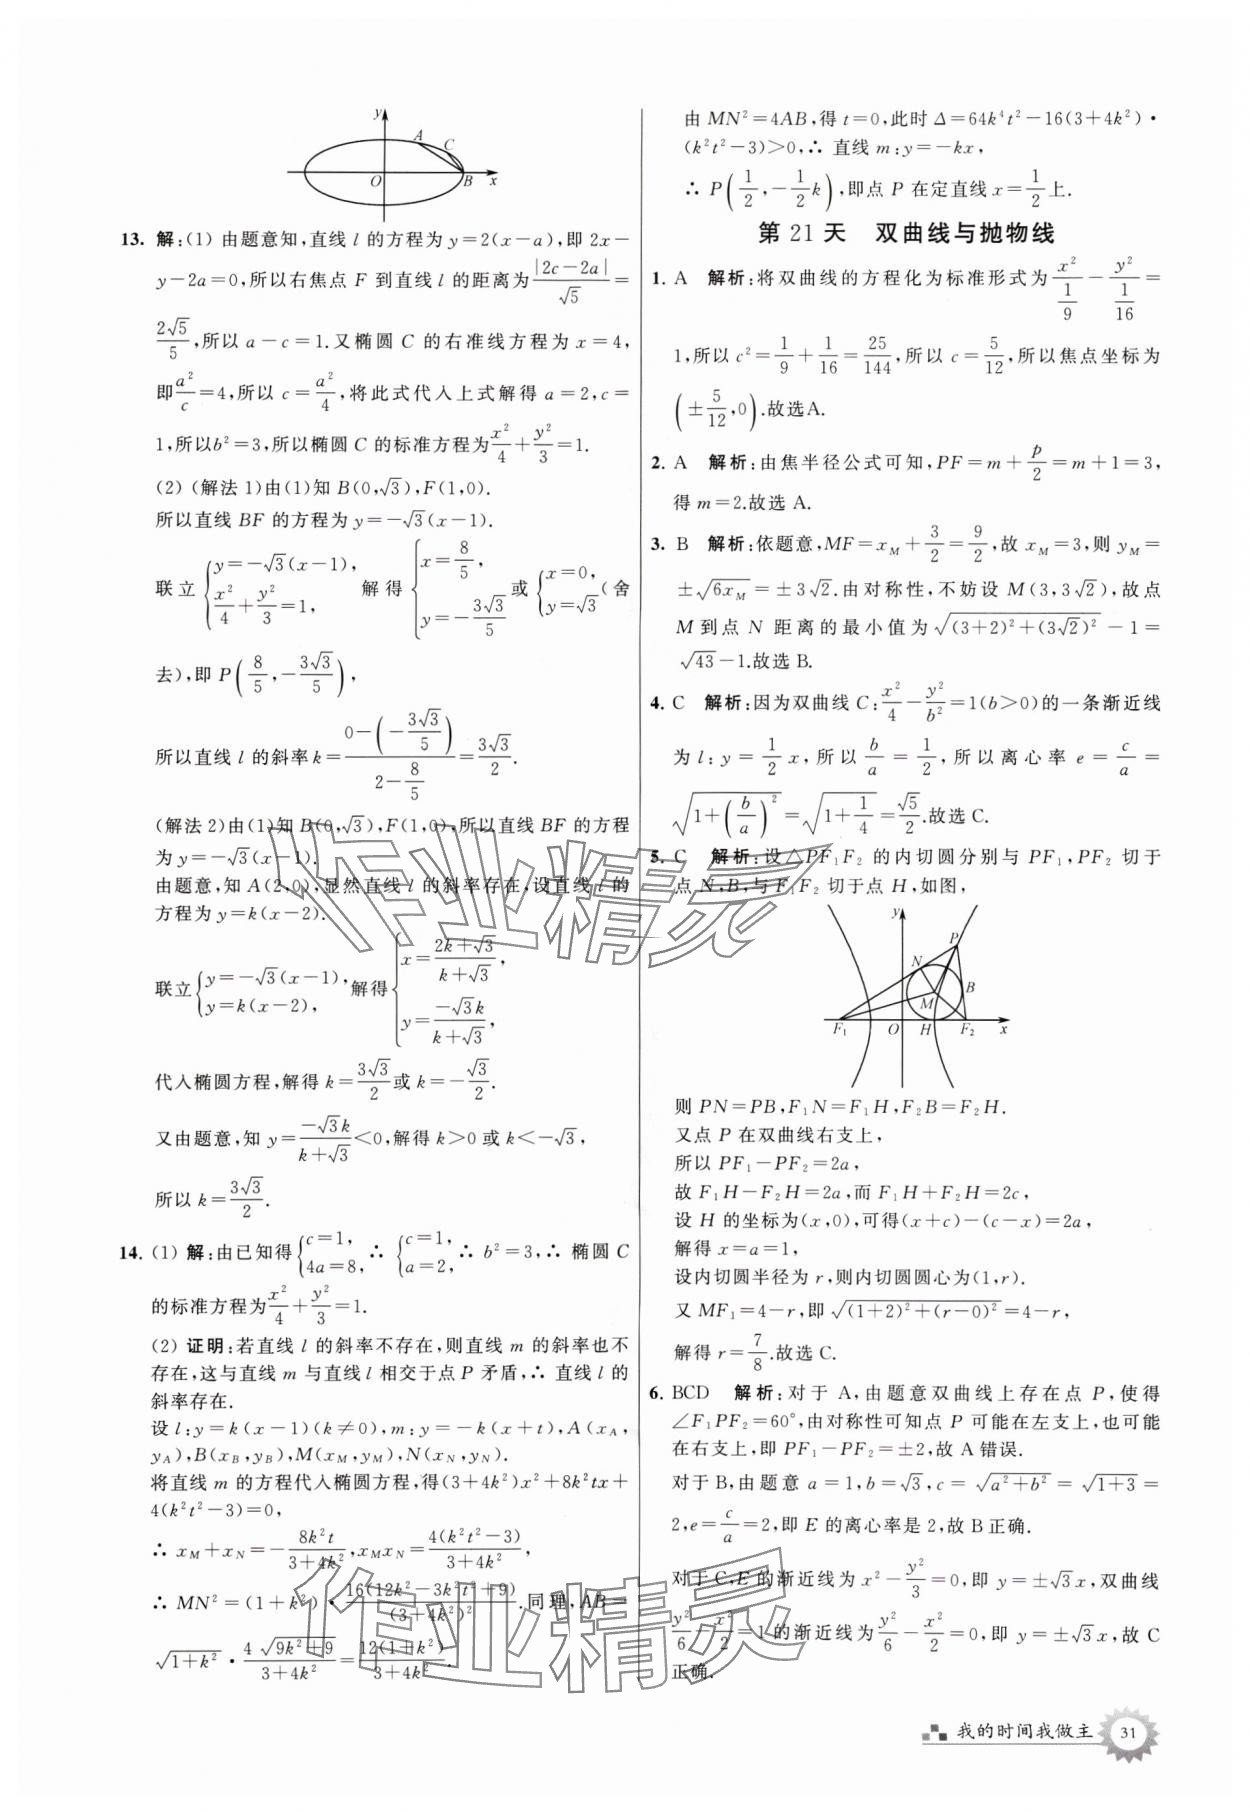 y
A
C
O
B
x
13. 解:(1) 由题意知,直线 l 的方程为 y=2(x-a),即 2x-
y-2a=0,所以右焦点 F 到直线 l 的距离为|2c-2a|/√5=
2√5/5,所以 a-c=1.又椭圆 C 的右准线方程为 x=4,
即a²/c=4,所以 c=a²/4,将此式代入上式解得 a=2,c=
1,所以b²=3,所以椭圆 C 的标准方程为x²/4+y²/3=1.
(2) (解法 1)由(1)知 B(0,√3),F(1,0).
所以直线 BF 的方程为 y=-√3(x-1).
联立{y=-√3(x-1), x²/4+y²/3=1, 解得{x=8/5, y=-3√3/5 或{x=0, y=√3 (舍
去),即 P(8/5,-3√3/5),
所以直线 l 的斜率 k=(0-(-3√3/5))/(2-8/5)=3√3/2.
(解法 2)由(1)知 B(0,√3),F(1,0),所以直线 BF 的方程
为 y=-√3(x-1).
由题意,知 A(2,0),显然直线 l 的斜率存在,设直线 l 的
方程为 y=k(x-2).
联立{y=-√3(x-1), y=k(x-2), 解得{x=(2k+√3)/(k+√3), y=-√3k/(k+√3),
代入椭圆方程,解得 k=3√3/2或 k=-√3/2.
又由题意,知 y=-√3k/(k+√3)<0,解得 k>0 或 k<-√3,
所以 k=3√3/2.
14. (1) 解:由已知得{c=1, 4a=8, ∴ {c=1, a=2, ∴ b²=3,∴ 椭圆 C
的标准方程为x²/4+y²/3=1.
(2) 证明:若直线 l 的斜率不存在,则直线 m 的斜率也不
存在,这与直线 m 与直线 l 相交于点 P 矛盾,∴ 直线 l 的
斜率存在.
设 l:y=k(x-1)(k≠0),m:y=-k(x+t),A(x_A,
y_A),B(x_B,y_B),M(x_M,y_M),N(x_N,y_N).
将直线 m 的方程代入椭圆方程,得(3+4k²)x²+8k²tx+
4(k²t²-3)=0,
∴ x_M+x_N=-8k²t/(3+4k²),x_Mx_N=4(k²t²-3)/(3+4k²),
∴ MN²=(1+k²)·16(12k²-3k²t²+9)/(3+4k²)².同理,AB=
√(1+k²)·4√(9k²+9)/(3+4k²)=12(1+k²)/(3+4k²).
由 MN²=4AB,得 t=0,此时 Δ=64k⁴t²-16(3+4k²)·
(k²t²-3)>0,∴ 直线 m:y=-kx,
∴ P(1/2,-1/2k),即点 P 在定直线 x=1/2上.
第 21 天 双曲线与抛物线
1. A 解析:将双曲线的方程化为标准形式为x²/(1/9)-y²/(1/16)=
1,所以 c²=1/9+1/16=25/144,所以 c=5/12,所以焦点坐标为
(±5/12,0).故选A.
2. A 解析:由焦半径公式可知,PF=m+p/2=m+1=3,
得 m=2.故选 A.
3. B 解析:依题意,MF=x_M+3/2=9/2,故 x_M=3,则 y_M=
±√(6x_M)=±3√2.由对称性,不妨设 M(3,3√2),故点
M 到点 N 距离的最小值为√((3+2)²+(3√2)²)-1=
√43-1.故选 B.
4. C 解析:因为双曲线 C:x²/4-y²/b²=1(b>0)的一条渐近线
为 l:y=1/2x,所以b/a=1/2,所以离心率 e=c/a=
√(1+(b/a)²)=√(1+1/4)=√5/2.故选 C.
5. C 解析:设△PF₁F₂ 的内切圆分别与 PF₁,PF₂ 切于
点 N,B,与 F₁F₂ 切于点 H,如图,
y
P
N
B
M
F₁
O
H
F₂
x
则 PN=PB,F₁N=F₁H,F₂B=F₂H.
又点 P 在双曲线右支上,
所以 PF₁-PF₂=2a,
故 F₁H-F₂H=2a,而 F₁H+F₂H=2c,
设 H 的坐标为(x,0),可得(x+c)-(c-x)=2a,
解得 x=a=1,
设内切圆半径为 r,则内切圆圆心为(1,r).
又 MF₁=4-r,即√((1+2)²+(r-0)²)=4-r,
解得 r=7/8.故选 C.
6. BCD 解析:对于 A,由题意双曲线上存在点 P,使得
∠F₁PF₂=60°,由对称性可知点 P 可能在左支上,也可能
在右支上,即 PF₁-PF₂=±2,故 A 错误.
对于 B,由题意 a=1,b=√3,c=√(a²+b²)=√(1+3)=
2,e=c/a=2,即 E 的离心率是 2,故 B 正确.
对于 C,E 的渐近线为 x²-y²/3=0,即 y=±√3x,双曲线
y²/6-x²/2=1 的渐近线为y²/6-x²/2=0,即 y=±√3x,故 C
正确.
作业精灵
作业精灵
我的时间我做主 31